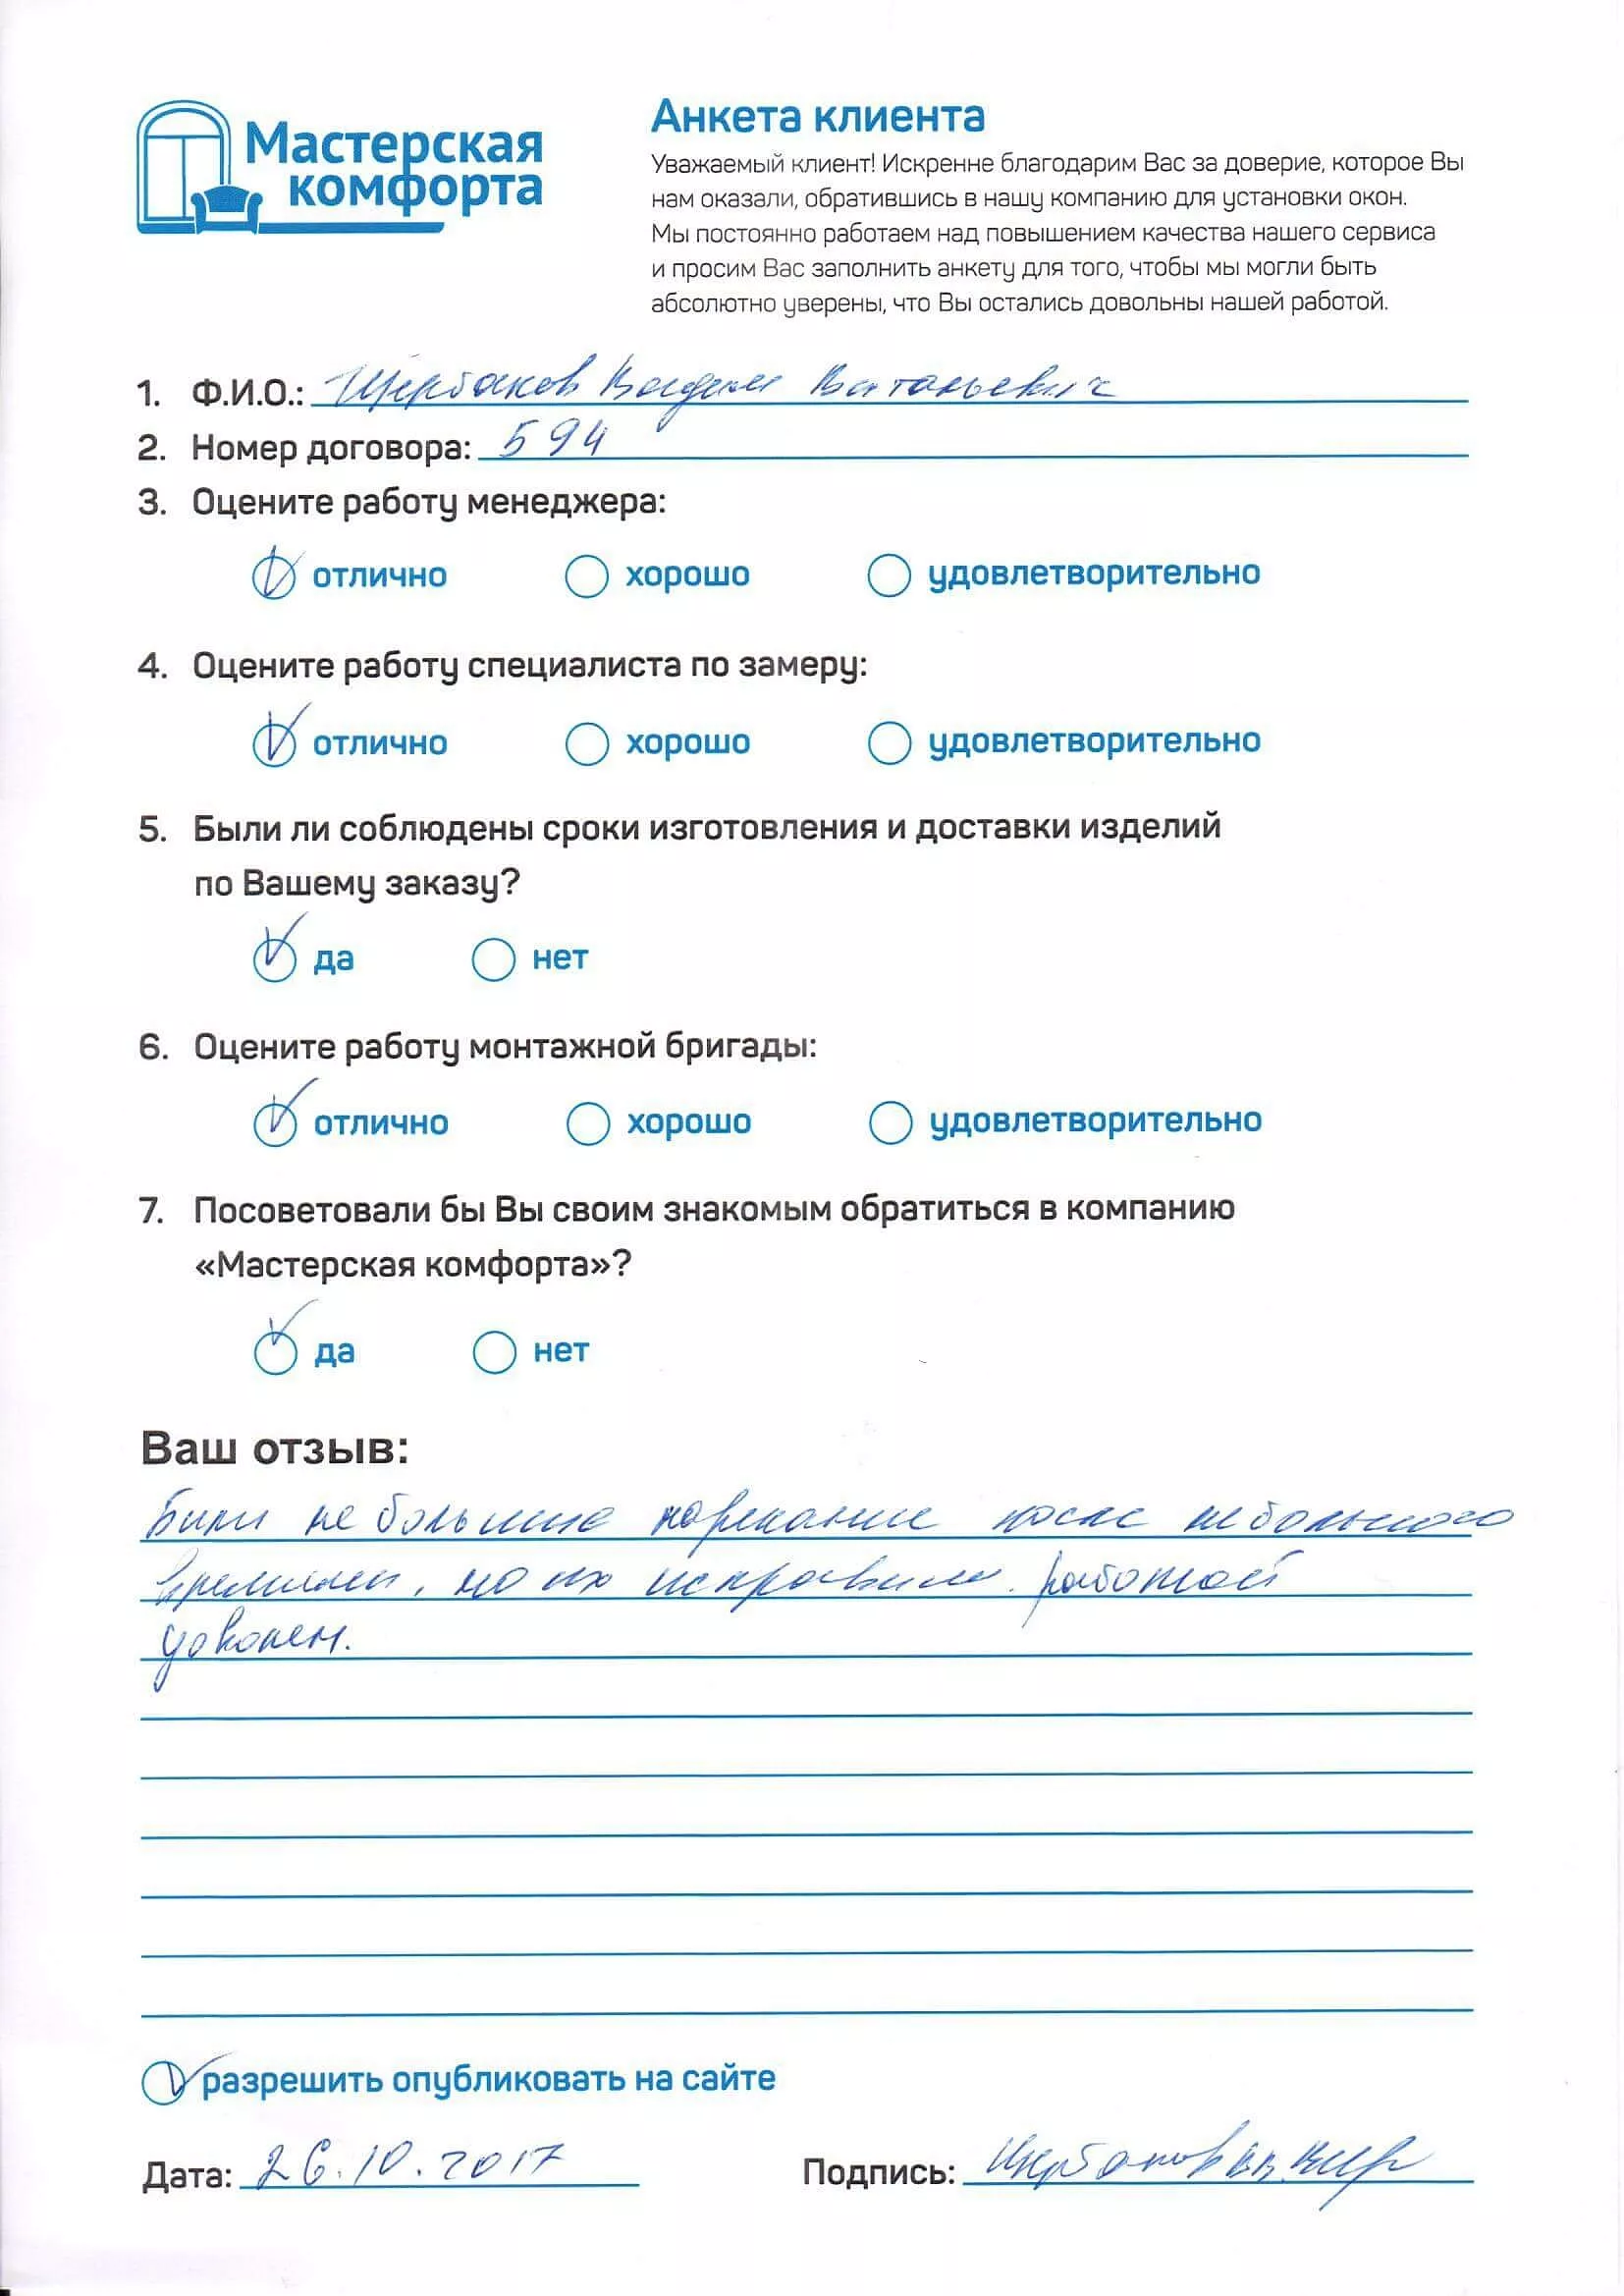 Мастерская
комфорта
Анкета клиента
Уважаемый клиент! Искренне благодарим Вас за доверие, которое Вы
нам оказали, обратившись в нашу компанию для установки окон.
Мы постоянно работаем над повышением качества нашего сервиса
и просим Вас заполнить анкету для того, чтобы мы могли быть
абсолютно уверены, что Вы остались довольны нашей работой.
1. Ф.И.О.: Щербаков Вадим
2. Номер договора: 594
3. Оцените работу менеджера:
отлично хорошо удовлетворительно
4. Оцените работу специалиста по замеру:
отлично хорошо удовлетворительно
5. Были ли соблюдены сроки изготовления и доставки изделий
по Вашему заказу?
да нет
6. Оцените работу монтажной бригады:
отлично хорошо удовлетворительно
7. Посоветовали бы Вы своим знакомым обратиться в компанию
«Мастерская комфорта»?
да нет
Ваш отзыв:
Были не большие нарекание после небольшого
времени, но их исправили. Работой
доволен.
разрешить опубликовать на сайте
Дата: 26.10.2017 Подпись: Щербаков